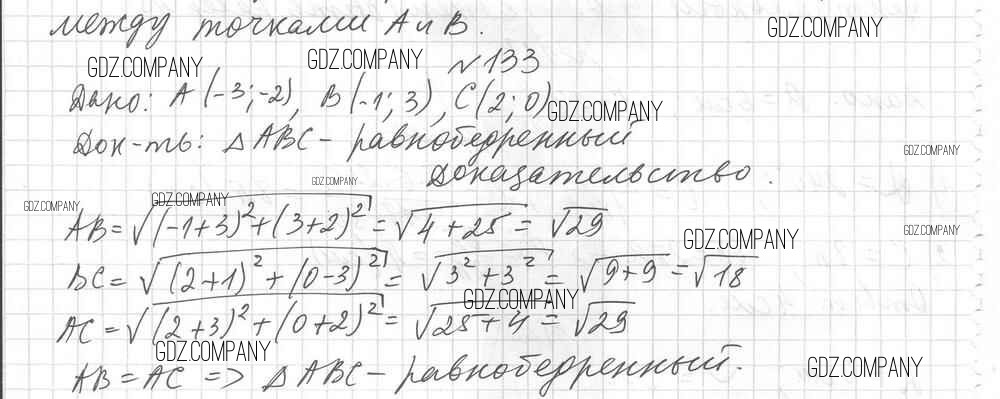 между точками A и B.
GDZ.COMPANY
GDZ.COMPANY GDZ.COMPANY №133
Дано: A (-3; -2), B (-1; 3), C (2; 0)
GDZ.COMPANY
Док-ть: △ ABC - равнобедренный
GDZ.COMPANY
Доказательство.
GDZ.COMPANY
GDZ.COMPANY
GDZ.COMPANY
AB = √((-1+3)² + (3+2)²) = √(4+25) = √29
GDZ.COMPANY
GDZ.COMPANY
BC = √((2+1)² + (0-3)²) = √(3²+3²) = √(9+9) = √18
GDZ.COMPANY
AC = √((2+3)² + (0+2)²) = √(25+4) = √29
GDZ.COMPANY
AB = AC => △ ABC - равнобедренный.
GDZ.COMPANY